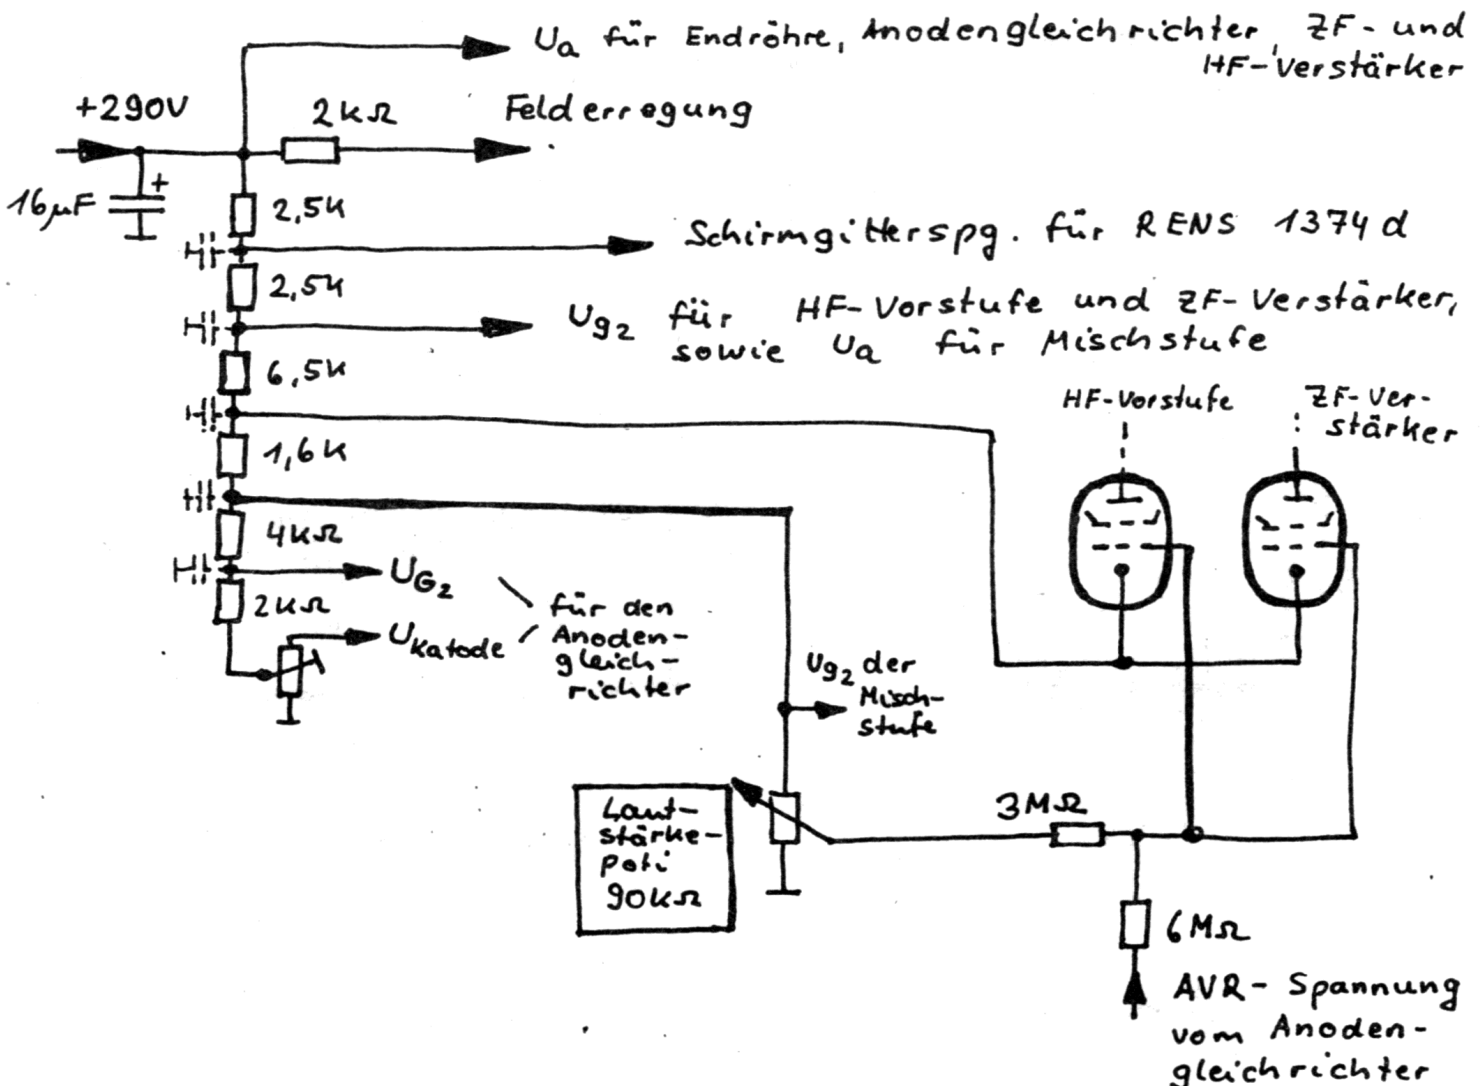 Ua für Endröhre, Anodengleichrichter, ZF- und
HF-Verstärker
+290V
2kΩ
Felderregung
16µF
+
2,5K
Schirmgitterspg. für RENS 1374d
2,5K
Ug2 für HF-Vorstufe und ZF-Verstärker,
sowie Ua für Mischstufe
6,5K
HF-Vorstufe
ZF-Ver-
stärker
1,6K
4kΩ
UG2
2kΩ
für den
Anoden-
gleich-
richter
UKatode
Ug2 der
Misch-
stufe
Laut-
stärke-
poti
90kΩ
3MΩ
6MΩ
AVR-Spannung
vom Anoden-
gleichrichter